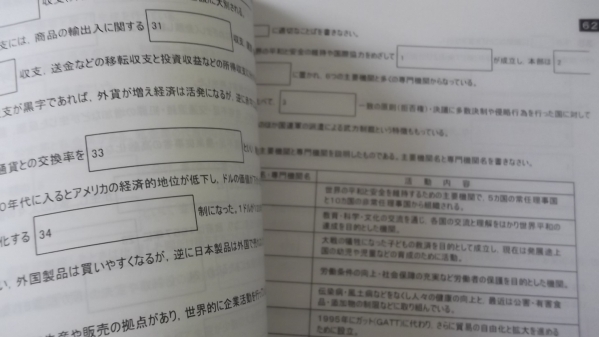 支には，商品の輸出入に関する 31 収支，
収支，送金などの移転収支と投資収益などの所得収支
支が黒字であれば，外貨が増え経済は活発になるが，逆に
通貨との交換率を 33 とい
0年代に入るとアメリカの経済的地位が低下し，ドルの価値が
化する 34 制になった。1ドルが
い，外国製品は買いやすくなるが，逆に日本製品は外国で
や販売の拠点があり，世界的に企業活動を
62
に適切なことばを書きなさい。
界の平和と安全の維持や国際協力をめざして 1 が成立し，本部は 2
に置かれ，6つの主要機関と多くの専門機関からなっている。
3 一致の原則（拒否権）・決議に多数決制や侵略行為を行った国に対して
国連軍の派遣による武力制裁という特徴ももっている。
主要機関と専門機関を説明したものである。主要機関名と専門機関名を書きなさい。
名・専門機関名 活動内容
世界の平和と安全を維持するための主要機関で，5カ国の常任理事国
と10カ国の非常任理事国から組織される。
教育・科学・文化の交流を通じ，各国の交流と理解をはかり世界平和の
達成を目的とした機関。
大戦の犠牲になった子どもの救済を目的として成立し，現在は発展途上
国の幼児や児童などの育成のために活動。
労働条件の向上・社会保障の充実など労働者の保護を目的とした機関。
伝染病・風土病などをなくし人々の健康の向上と，最近は公害・有害食
品・添加物の制限などに取り組んでいる。
1995年にガット(GATT)に代わり，さらに貿易の自由化と拡大を進める
ために設立。